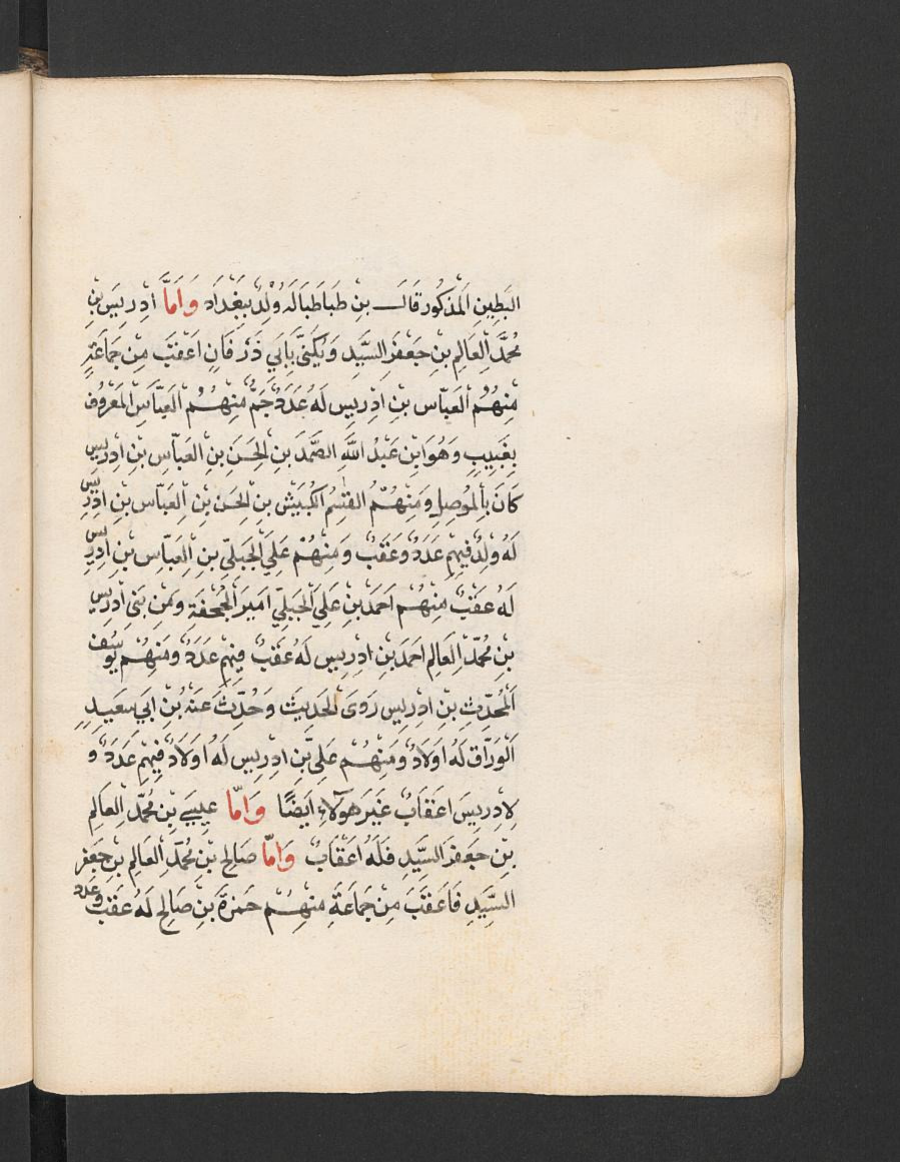 البَطِينِ المَذكُور قَالَ بنِ طَبَاطَبَا لَهُ وُلِدُ بِبَغْدَاد وَاَمَّا اِدرِيسَ بنِ
مُحمَّد العَالِمِ بنِ جَعفَرَ السَيِّدِ وَيُكَنّى بِاَبِي ذَرّ فَانِ اَعقَبَ مِن جَمَاعَةٍ
مِنهُم العَبَّاس بنِ اِدرِيس لَهُ عَدَدُ جَمُّ مِنهُم العَبَّاس المَعرُوف
بِغَبِيبٍ وَهُوَ ابن عَبدُ اللَّه الصَّمَدَ بنِ الحَسَنِ بنِ العَبَّاسِ بنِ اِدرِيس
كَانَ بِالمُوصِلِ وَمِنهُم القسِمُ الكُبَيش بنِ الحَسَن بنِ العَبَّاس بنِ ادرِيس
لَهُ وُلِدُ فِيهِم عَدَدُ وعَقَبُ وَمِنهُم عَلِي الجَبَلِيّ بنِ العَبَّاس بنِ اِدرِيس
لَهُ عَقَبٌ مِنهُم اَحمَدَ بنِ عَلِي الجَبَلِي اَمِيرَ الجُحفَةِ وَمِن بَنى اِدرِيس
بنِ مُحمَّد العَالِم اَحمَدَ بنِ اِدرِيس لَهُ عَقَبُ فِيهِم عَدَدُ وَمِنهُم يُوسُف
المُحَدِّثِ بنِ اِدرِيس رَوَى الحَدِيثَ وَحُدِّثَ عَنهُ بنِ ابي سَعِيدٍ
الوَرَّاق لَهُ اَولَادُ وَمِنهُم عَلِى بنِ اِدرِيس لَهُ اَولَادُ فِيهِم عَدَدُ و
لِادِريسَ اَعقَابُ غَيرَ هَولَاءِ اَيضًا وَاَمَّا عِيسَي بنِ مُحمَّد العَالِمِ
بنِ جَعفَر السَيِّدِ فَلَهُ اَعقَابُ وَاَمَّا صَالِح بنِ مُحمَّد العَالِم بنِ جَعفَر
السَيِّدِ فَاَعقَبَ مِن جَمَاعَةَ مِنهُم حَمزَةَ بنِ صَالِح لَهُ عَقَبُ وعَدَد